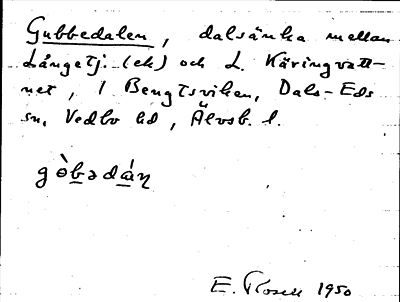 Gubbedalen, dalsänka mellan
Långetj. (ek) och L. Käringvatt-
net, i Bengtsviken, Dals-Eds
sn, Vedbo hd, Älvsb. l.
gòbədáṇ
E. Rosell 1950